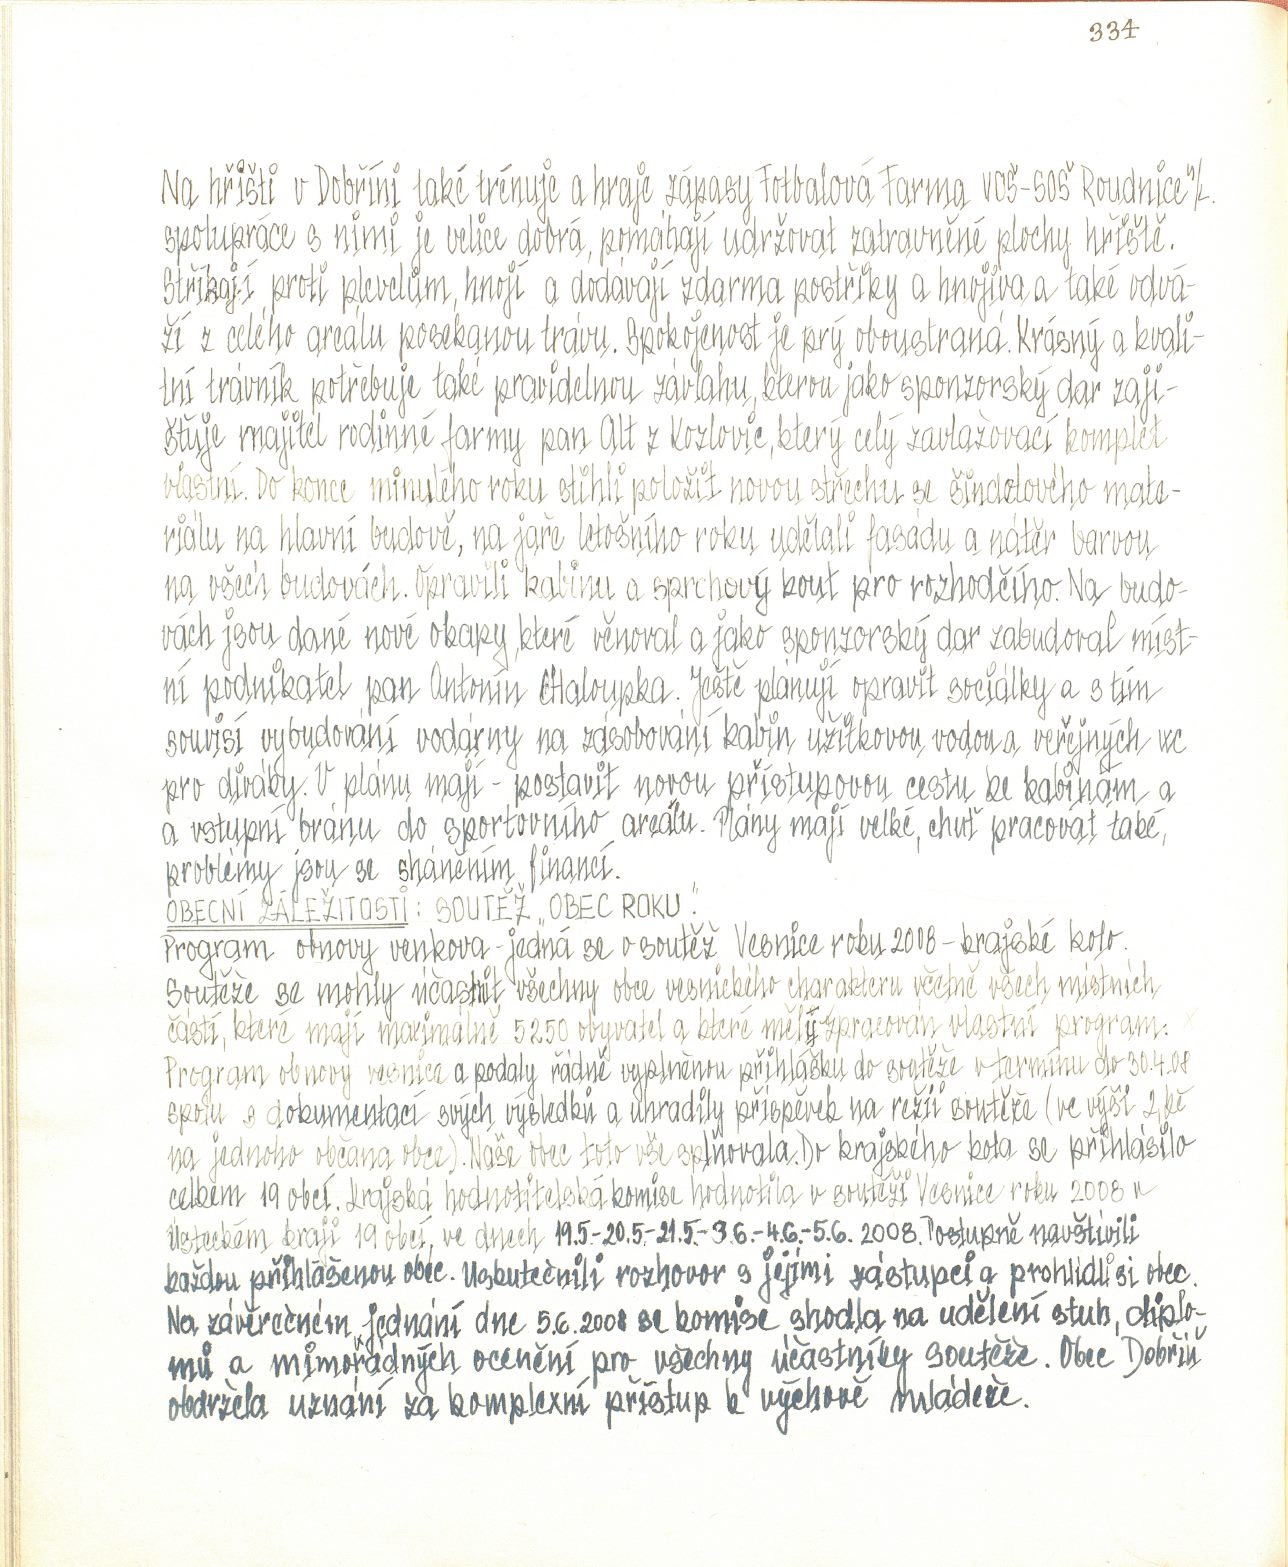 334
Na hřišti v Dobříni také trénuje a hraje zápasy Fotbalová Farma VOŠ-SOŠ Roudnice n/L.
spolupráce s nimi je velice dobrá, pomáhají udržovat zatravněné plochy hřiště.
Stříkají proti plevelům, hnojí a dodávají zdarma postřiky a hnojiva a také odvá-
ží z celého areálu posekanou trávu. Spokojenost je prý oboustraná. Krásný a kvali-
tní trávník potřebuje také pravidelnou závlahu, kterou jako sponzorský dar zaji-
šťuje majitel rodinné farmy pan Alt z Kozlovic, který celý zavlažovací komplet
vlastní. Do konce minulého roku stihli položit novou střechu se šindelového mate-
riálu na hlavní budově, na jaře letošního roku udělali fasádu a nátěr barvou
na všech budovách. Opravili kabinu a sprchový kout pro rozhodčího. Na budo-
vách jsou dané nové okapy, které věnoval a jako sponzorský dar zabudoval míst-
ní podnikatel pan Antonín Chaloupka. Ještě plánují opravit sociálky a s tím
souvisí vybudování vodárny na zásobování kabin užitkovou vodou a veřejných wc
pro diváky. V plánu mají - postavit novou přístupovou cestu ke kabinám a
a vstupní bránu do sportovního areálu. Plány mají velké, chuť pracovat také,
problémy jsou se sháněním financí.
OBECNÍ ZÁLEŽITOSTI: SOUTĚŽ „OBEC ROKU":
Program obnovy venkova - jedná se o soutěž Vesnice roku 2008 - krajské kolo.
Soutěže se mohly účastnit všechny obce vesnického charakteru včetně všech místních
částí, které mají maximálně 5250 obyvatel a které měly zpracován vlastní program:
Program obnovy vesnice a podaly řádně vyplněnou přihlášku do soutěže v termínu do 30.4.08
spolu s dokumentací svých výsledků a uhradily příspěvek na režii soutěže (ve výši 2,kč
na jednoho občana obce). Naše obec toto vše splňovala. Do krajského kola se přihlásilo
celkem 19 obcí. Krajská hodnotitelská komise hodnotila v soutěži Vesnice roku 2008 v
Ústeckém kraji 19 obcí, ve dnech 19.5.-20.5.-21.5.-3.6.-4.6.-5.6. 2008. Postupně navštívili
každou přihlášenou obec. Uskutečnili rozhovor s jejími zástupci a prohlídli si obec.
Na závěrečném jednání dne 5.6.2008 se komise shodla na udělení stuh, diplo-
mů a mimořádných ocenění pro všechny účastníky soutěže. Obec Dobříň
obdržela uznání za komplexní přístup k výchově mládeže.